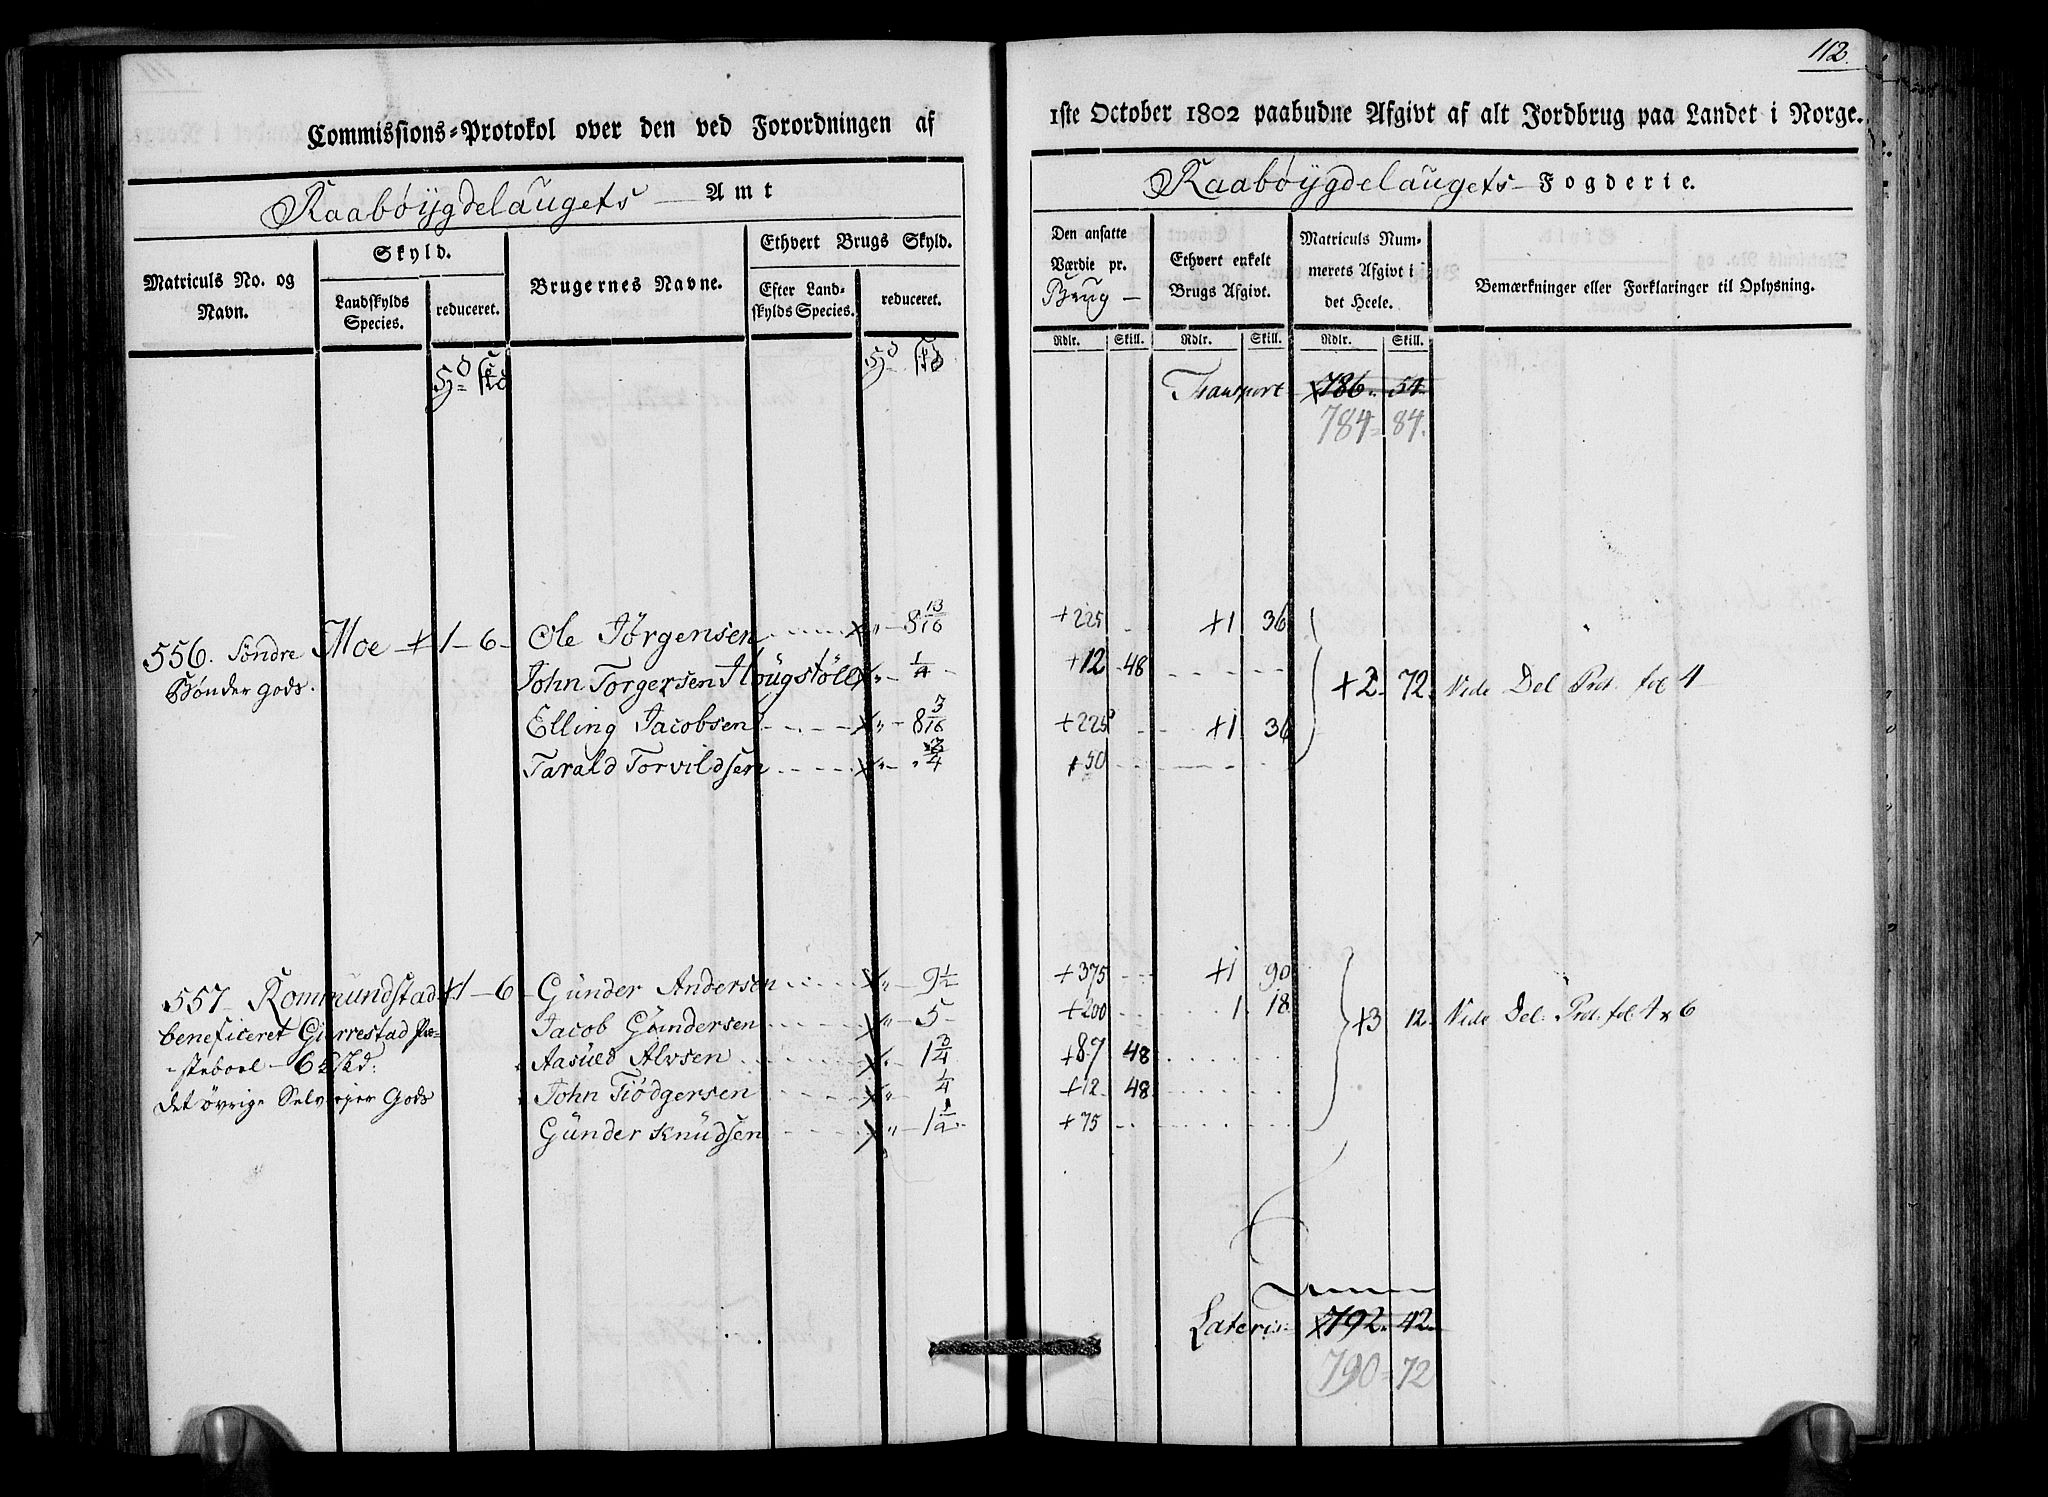 112.
Commissions-Protokol over den ved Forordningen af 1ste October 1802 paabudne Afgivt af alt Jordbrug paa Landet i Norge.
Raabøygdelaugets Amt
Raabøygdelaugets Fogderie.
Matriculs No. og Navn.
Skyld.
Landskylds Species.
reduceret.
Brugernes Navne.
Ethvert Brugs Skyld.
Efter Landskylds Species.
reduceret.
Den ansatte Værdie pr. Brug
Ethvert enkelt Brugs Afgivt.
Matriculs Nummerets Afgivt i det Heele.
Bemærkninger eller Forklaringer til Oplysning.
Rdlr. Skill. Rdlr. Skill. Rdlr. Skill.
Transport 786. 54
784 = 84.
556. Søndre Moe + 1 - 6 - Ole Jørgensen x " - 8 13/16 + 225 - +1 36
Bøndergods. John Torgersen Hougstøll x " - 1/4 - +12 - 48 +2 - 72. Vide Del. Prot. fol 4
Elling Jacobsen x " - 8 3/16 +225 +1 36
Tarald Torvildsen x " - " 3/4 +50
557 - Rommundstad +1 - 6 - Günder Andersen x " - 9 1/2 +375 +1 90
beneficeret Gierrestad Præ- Jacob Gündersen x " - 5 - +200 1. 18. +3 12. Vide Del. Prot. fol. 4 & 6
-steboel - 6 Skd: Aasüld Alvsen x " - 1 3/4 +87 48
det øvrige Selveyer Gods John Tiödgersen x " - 1/4 +12 48
Günder Knüdsen x " - 1 1/2 +75
Lateris 792. 42.
790 = 72